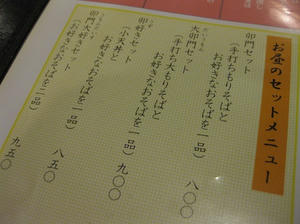 お昼のセットメニュー
卯門セット
(手打ちもりそばと
お好きなおそばを一品) 八〇〇
大卯門セット
(手打ち大もりそばと
お好きなおそばを一品) 九〇〇
卯好きセット
(小天丼と
お好きなおそばを一品) 八五〇
大好きセット
お好きなおそばを一品) 九五〇